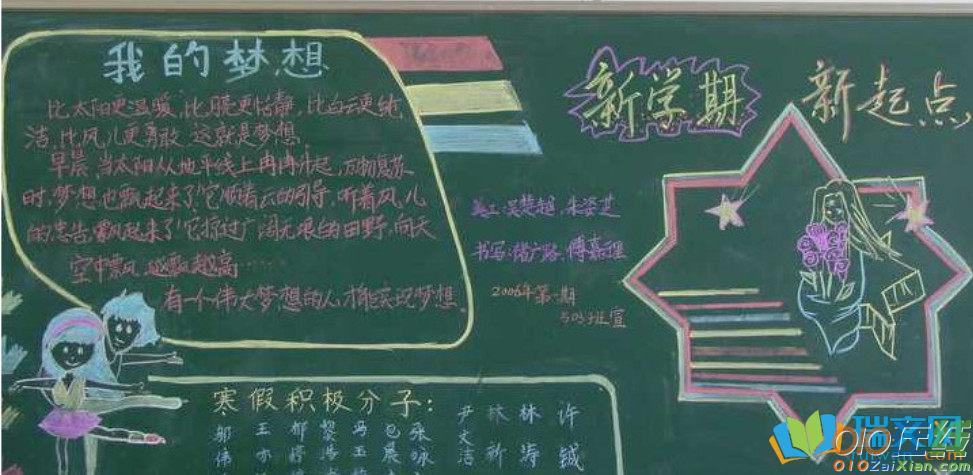 我的梦想
比太阳更温暖,比月亮更恬静,比白云更纯
洁,比风儿更勇敢,这就是梦想.
早晨,当太阳从地平线上冉冉升起,万物复苏
时,梦想也飘起来了!它顺着云的引导,听着风儿
的忠告飘起来了!它掠过广阔无垠的田野,向天
空中飘,越飘越高……
有一个伟大梦想的人,才能实现梦想.
新学期 新起点
美工:吴楚越、朱姿芝
书写:储广路、傅嘉程
2006年第一期
503班宣
寒假积极分子:
尹文洁
林新
林涛
许铖
010在线
010zaiXian.com